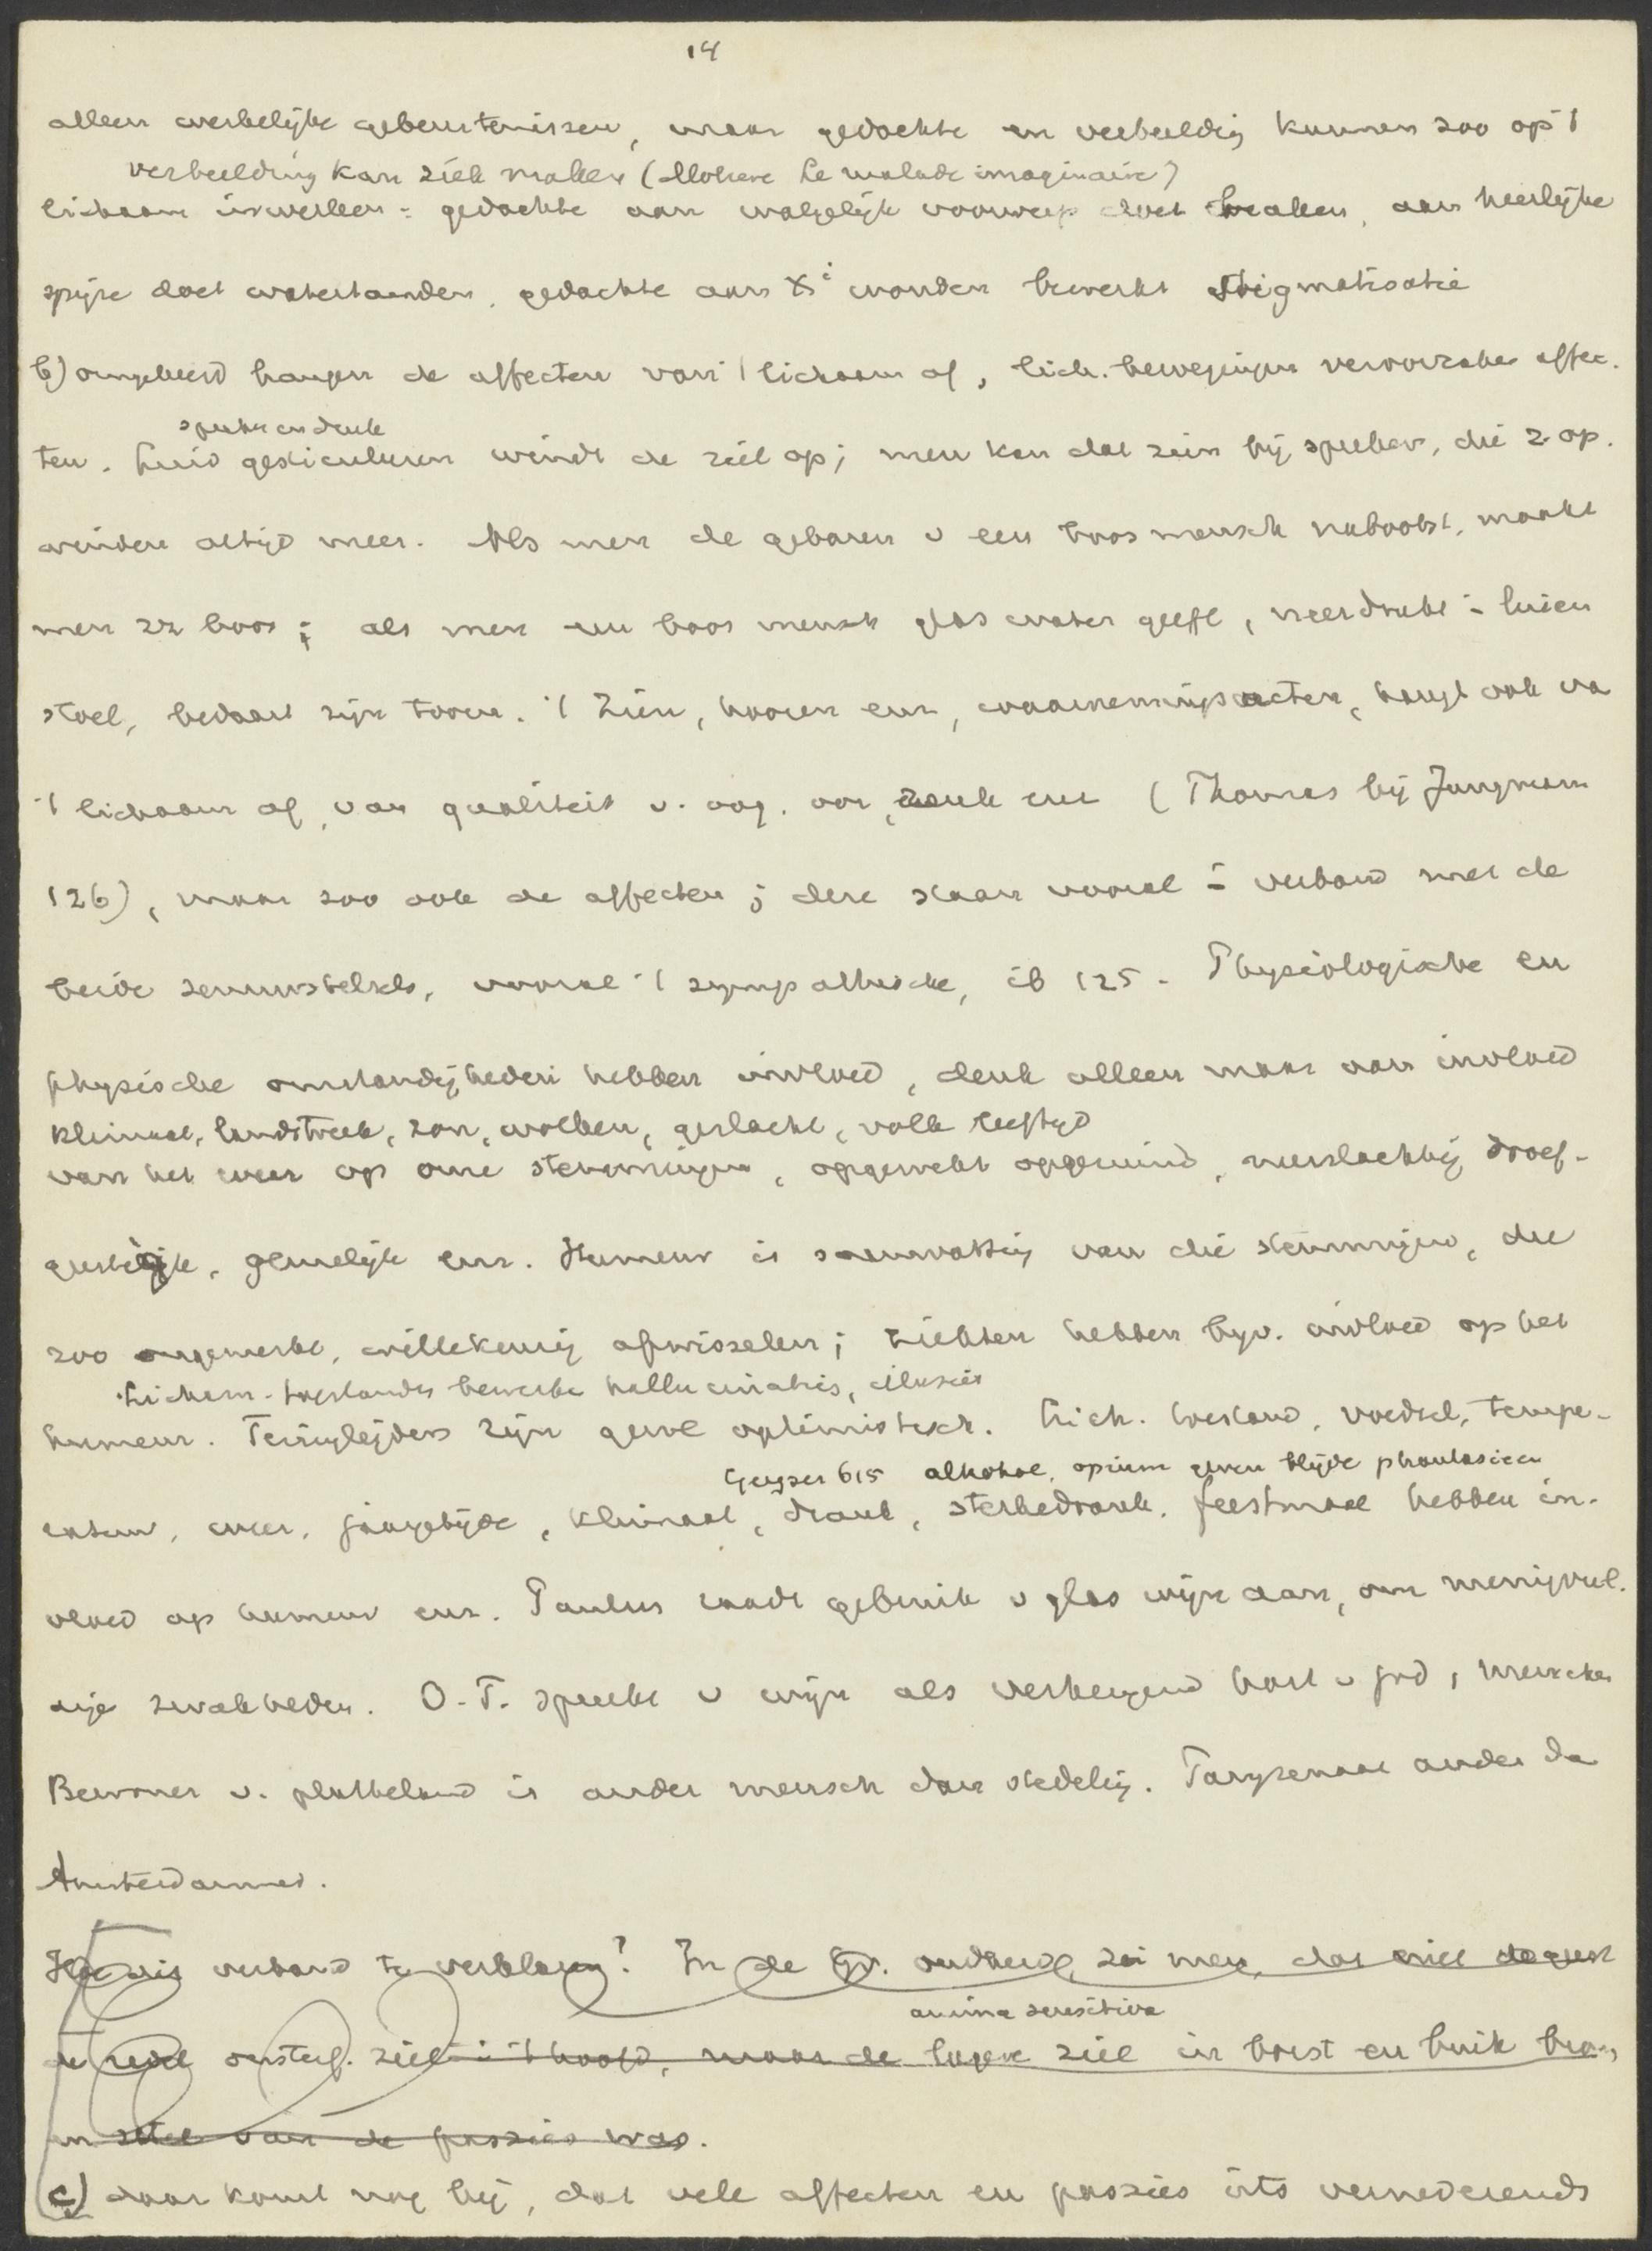 14
alleen werkelijke gebeurtenissen, maar gedachte en verbeeldig kunnen zoo op 't
verbeelding kan ziek maken (Moliere Le malade imaginaire)
lichaam inwerken: gedachte aan walgelijk voorwerp doet braken, aan heerlijke
spijze doet watertanden, gedachte aan Xi wonden bewerkt stigmatisatie
b) omgekeerd hangen de affecten van 't lichaam af, lich. bewegingen veroorzaken affec-
spreken en denk
ten. Luid gesticuleren windt de ziel op; men kan dat zien bij sprekers, die z. op-
winden altijd meer. Als men de gebaren v een boos mensch nabootst, maakt
men zz boos; als men een boos mensch glas water geeft, neerdrukt i luien
stoel, bedaart zijn toorn. 't Zien, hooren enz, waarnemingsacten, hangt ook va
't lichaam af, van qualiteit v. oog, oor, zenuw enz (Thomas bij Jungmann
126), maar zoo ook de affecten; deze staan vooral i verband met de
beide zenuwstelsels, vooral 't sympathische, ib 125. Physiologische en
physische omstandigheden hebben invloed, denk alleen maar aan invloed
Klimaat, landstreek, zon, wolken, geslacht, volk leeftijd
van het weer op onze stemmingen, opgewekt opgeruimd, neerslachtig droef-
geestig, gemelijk enz. Humeur is samenvatting van die stemmingen, die
zoo ongemerkt, willekeurig afwisselen; ziekten hebben bijv. invloed op het
Lichaams-toestanden bewerken hallucinaties, illusies
humeur. Teringlijders zijn gewl optimistisch. Lich. toestand, voedsel, tempe-
Geyser 615 alkohol, opium geven blijde phantasieen
ratuur, weer, jaargetijde, klimaat, drank, sterkedrank, feestmaal hebben in-
vloed op humeur enz. Paulus raadt gebruik v glas wijn aan, om menigvul-
dige zwakheden. O.T. spreekt v wijn als verheugend hart v god, menschen
Bewoner v. platteland is ander mensch dan stedelig. Parijzenaar ander da
Amsterdammer.
Hoe dit verband te verklaren? In de Gr. oudheid zei men, dat
de redel onsterf. ziel i 't hoofd, maar de lagere ziel in borst en buik
anima sensitiva
en zetel van de passies was.
c) daar komt nog bij, dat vele affecten en passies iets vernederends